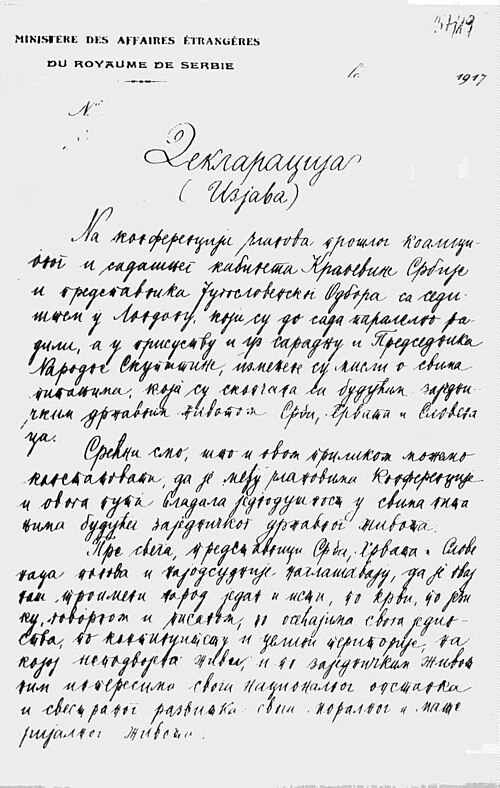 MINISTÈRE DES AFFAIRES ÉTRANGÈRES
DU ROYAUME DE SERBIE
le 1917
№
Декларација
(Изјава)
На конференцији чланова прошлог коалици-
оног и садашњег кабинета Краљевине Србије
и представника Југословенског Одбора са седи-
штем у Лондону, који су до сада паралелно ра-
дили, а у присуству и уз сарадњу и Председника
Народне Скупштине, измењене су мисли о свима
питањима, која су скопчана са будућим заједни-
чким државним животом Срба, Хрвата и Словена-
ца.
Срећни смо, што и овом приликом можемо
констатовати, да је међу члановима конференције
и овога пута владала једнодушност у свима пита-
њима будућег заједничког државног живота.
Пре свега, представници Срба, Хрвата и Слове-
наца понова и најодсудније наглашавају, да је овај
наш троимени народ један и исти, по крви, по јези-
ку, говорном и писаном, по осећајима свога једин-
ства, по континуитету и целини територије, на
којој неподвојено живи, и по заједничким живот-
ним интересима свога националног опстанка
и свестраног развитка свога моралног и мате-
ријалног живота.